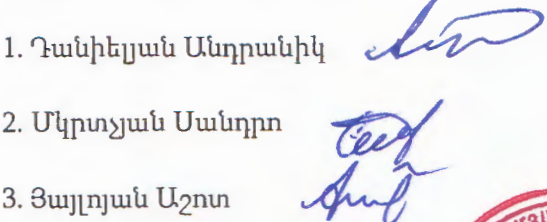 1. Դանիելյան Անդրանիկ
2. Մկրտչյան Սանդրո
3. Յայլոյան Աշոտ